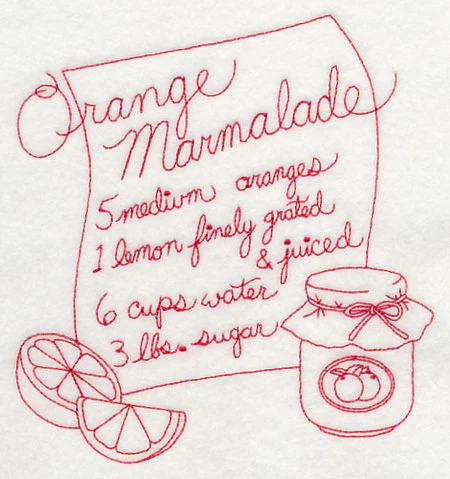 Orange
Marmalade
5 medium oranges
1 lemon finely grated
& juiced
6 cups water
3 lbs. sugar